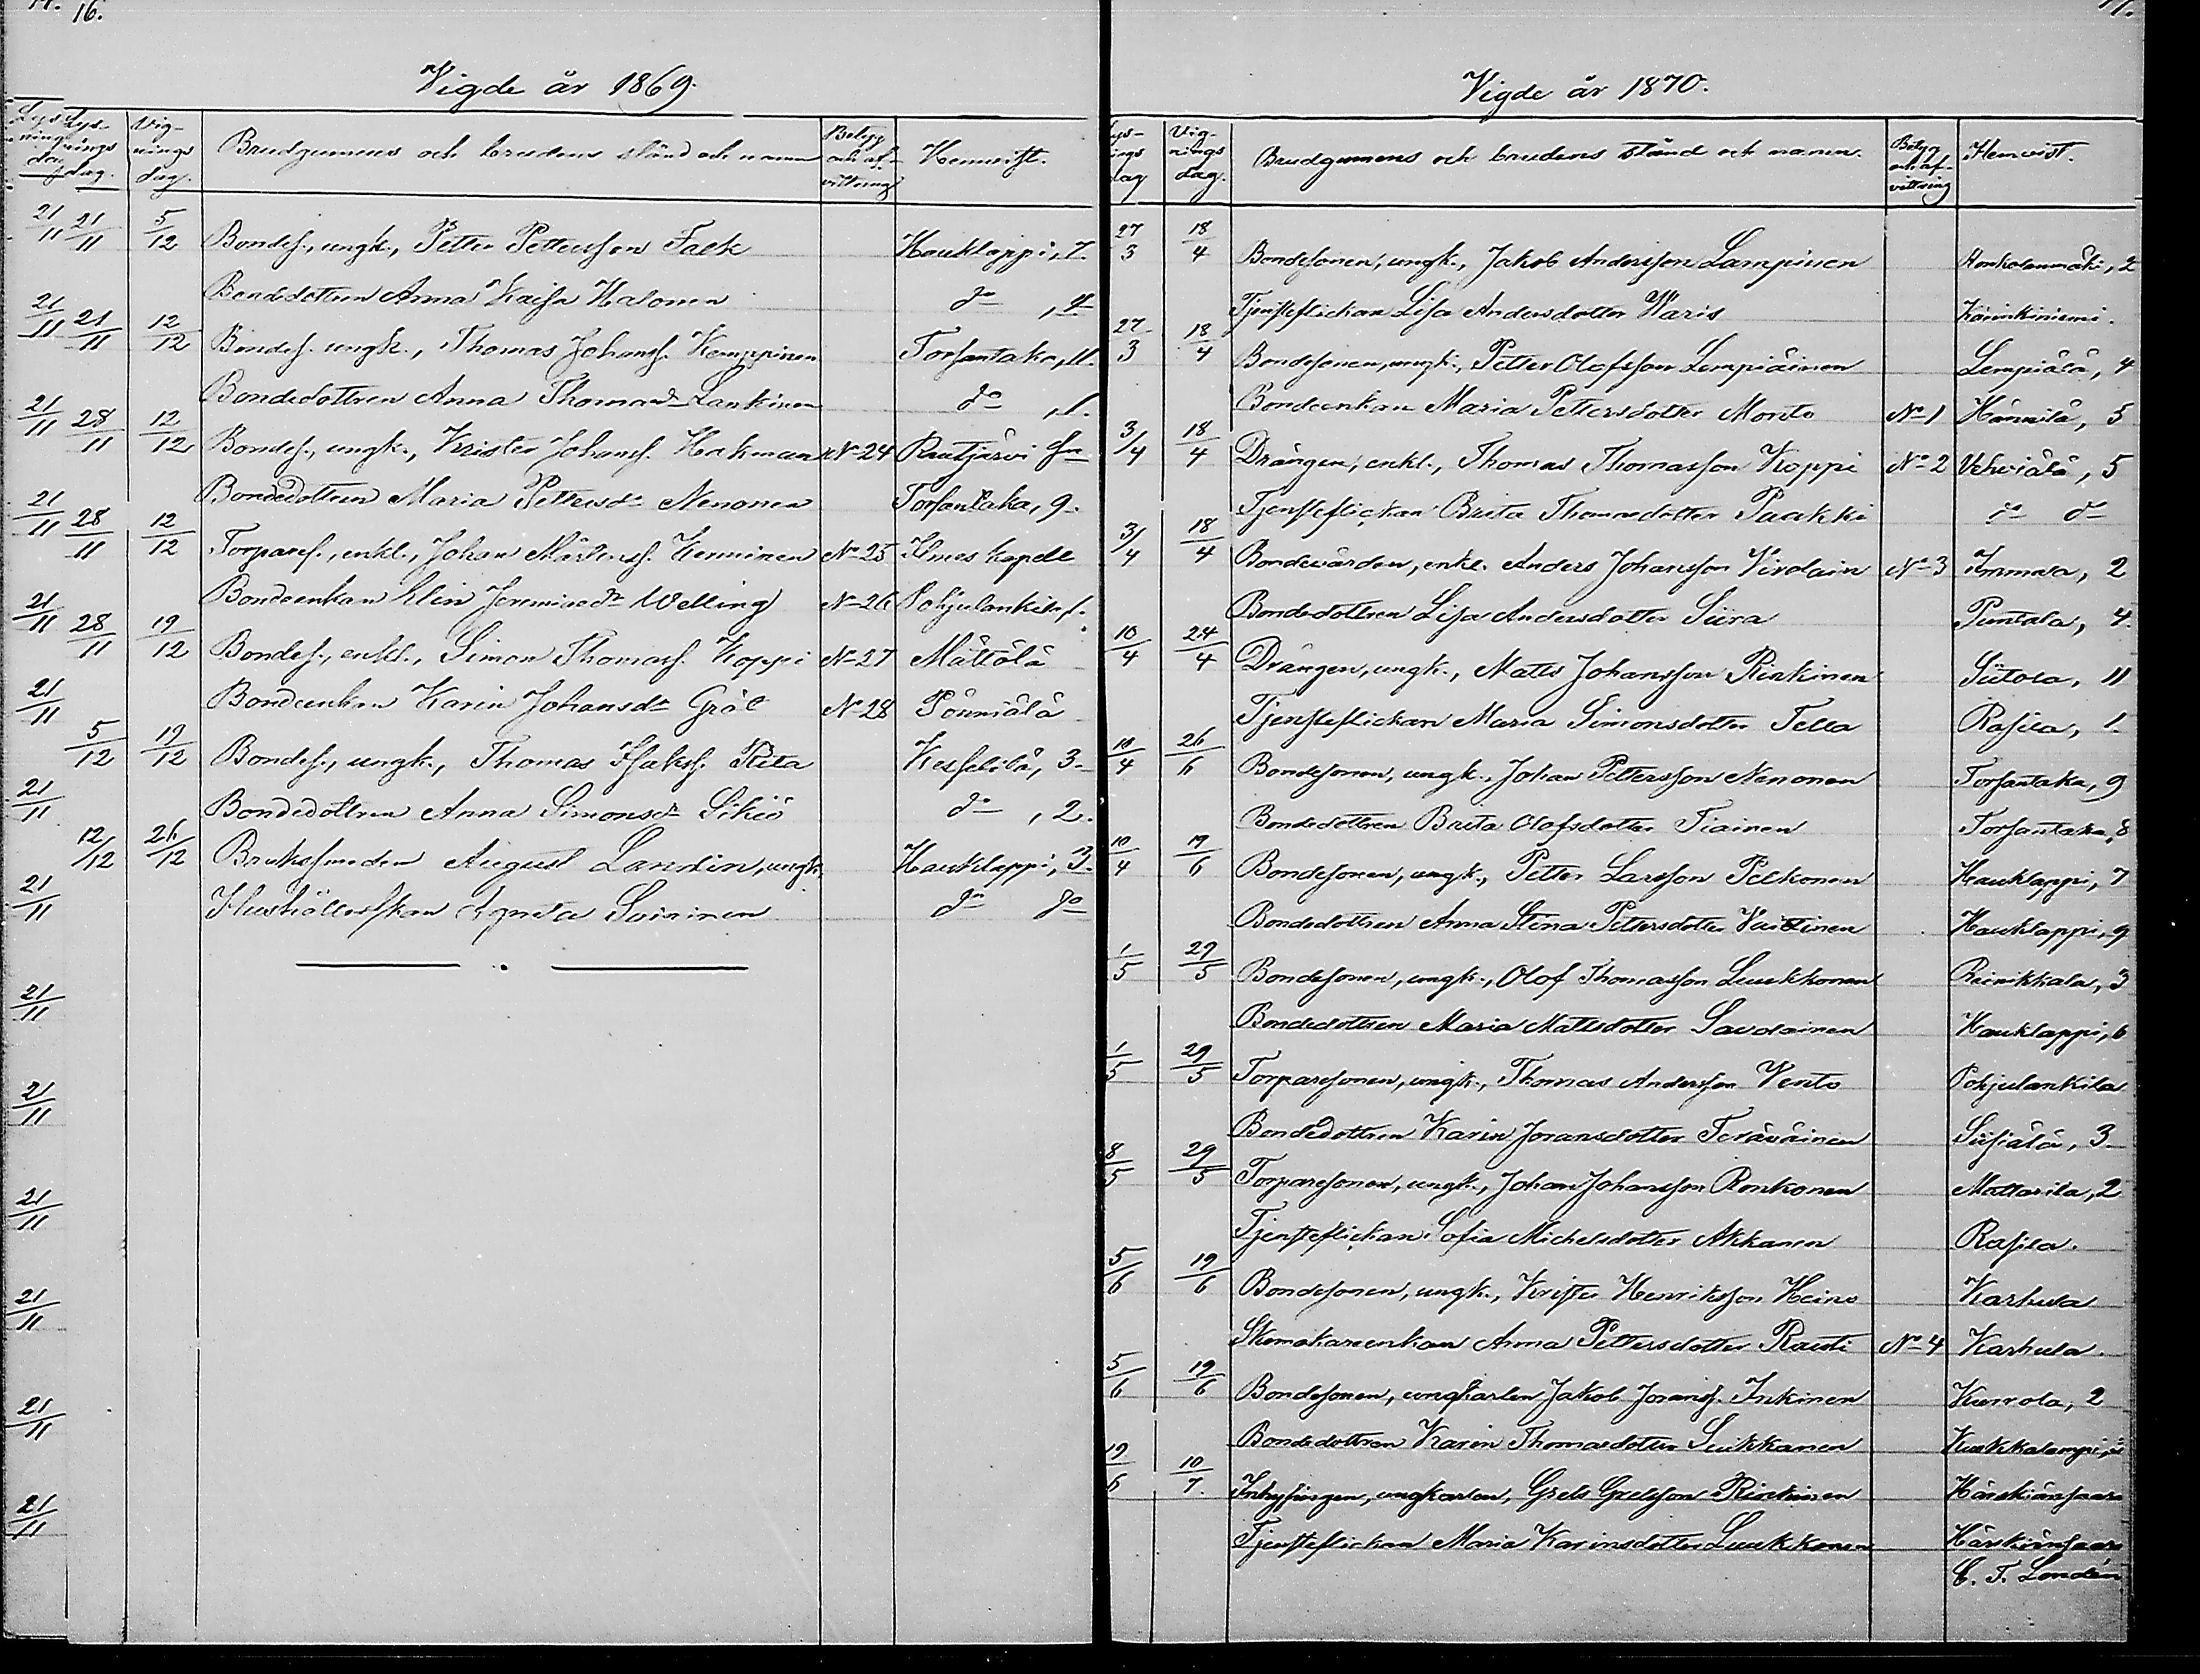 16.
Vigde år 1869.
Lysnings dag. Vignings dag. Brudgummens och brudens stånd och namn Betyg och afvittring Hemvist.
21/11 5/12 Bondes., ungk., Petter Pettersson Falk Hauklappi, 7.
Bondedottren Anna Kaisa Halonen do
21/11 12/12 Bondes. ungk., Thomas Johanss. Kemppinen Torsantaka, 11.
Bondedottren Anna Thomasdr Lankinen do , 1.
28/11 12/12 Bondes., ungk., Krister Johanss. Hakman No 24 Rautjärvi
Bondedottren Maria Pettersdr Nenonen Torsantaka, 9.
28/11 12/12 Torpares., enkl., Johan Mårtenss. Kenninen No 25 Ilmes Kapell
Bondeenkan Elin Jeremiaedr Welling No 26 Pohjulankila, 1.
28/11 19/12 Bondes., enkl., Simon Thomass. Koppi No 27 Mättölä
Bondeenkan Karin Johansdr Gröl No 28 Pönniälä
5/12 19/12 Bondes., ungk., Thomas Isakss. Rita Kesselilä, 3.
Bondedottren Anna Simonsdr Sikiö do , 2.
12/12 26/12 Brukssmeden August Landin, ungk. Hauklappi, 3.
Hushållerskan Agneta Soininen do do
17.
Vigde år 1870.
Lysnings dag Vignings dag. Brudgummens och brudens stånd och namn. Betyg och afvittring Hemvist.
27/3 18/4 Bondesonen, ungk., Jakob Andersson Lampinen Honkolanmäki, 2
Tjensteflickan Lisa Andersdotter Waris Kärinkiniemi.
27/3 18/4 Bondesonen, ungk., Petter Olofsson Lempiäinen Lempiälä, 4
Bondeenkan Maria Pettersdotter Monto No 1 Hännilä, 5
3/4 18/4 Drängen, enkl., Thomas Thomasson Koppi No 2 Vehviälä, 5
Tjensteflickan Brita Thomasdotter Paakki do do
3/4 18/4 Bondevärden, enkl. Anders Johansson Virolain No 3 Immola, 2
Bondedottren Lisa Andersdotter Siira Puntala, 4.
10/4 24/4 Drängen, ungk., Matts Johansson Rinkinen Siitola, 11
Tjensteflickan Maria Simonsdotter Tella Rasila, 1.
10/4 26/6 Bondesonen, ungk., Johan Pettersson Nenonen Torsantaka, 9
Bondedottren Brita Olofsdotter Tiainen Torsantaka, 8
10/4 19/6 Bondesonen, ungk., Petter Larsson Pelkonen Hauklappi, 7
Bondedottren Anna Stina Pettersdotter Vaittinen Hauklappi, 9
1/5 29/5 Bondesonen, ungk., Olof Thomasson Luukkonen Reinikkala, 3
Bondedottren Maria Mattsdotter Savolainen Hauklappi, 6
1/5 29/5 Torparesonen, ungk., Thomas Andersson Vento Pohjulankila
Bondedottren Karin Joransdotter Teräväinen Siisiälä, 3.
8/5 29/5 Torparesonen, ungk., Johan Johansson Ronkonen Mattarila, 2
Tjensteflickan Sofia Michelsdotter Akkanen Rasila.
5/6 19/6 Bondesonen, ungk., Krister Henriksson Heino Karhula
Skomakareenkan Anna Pettersdotter Rausti No 4 Karhula.
5/6 19/6 Bondesonen, ungkarlen Jakob Joranss. Inkinen Kurrola, 2
Bondedottren Karin Thomasdotter Suikkanen Kuukkalampi,
19/6 10/7. Inhysingen, ungkarlen, Grels Grelsson Rinkinen Härskiänsaari
Tjensteflickan Maria Karinsdotter Luukkonen Härskiänsaari
C. F. Londén